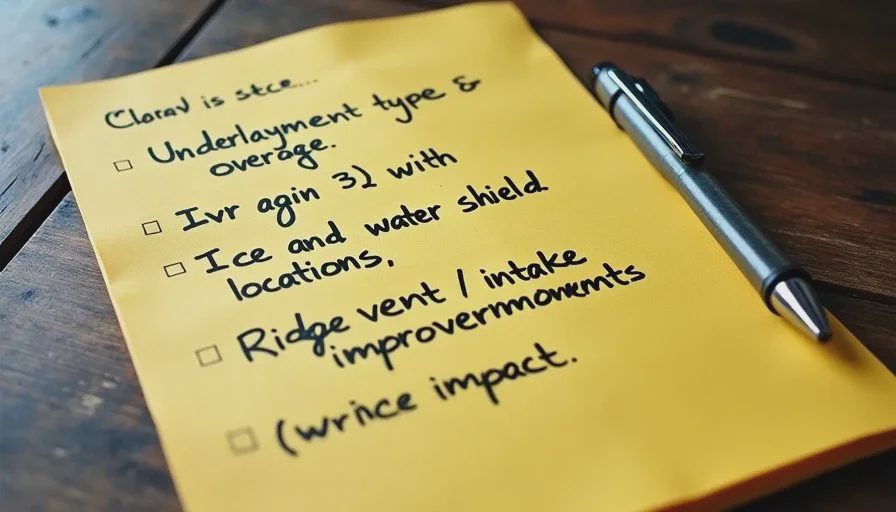 Clarav is stce...
Underlayment type &
overage.
Ivr agin 32 with
Ice and water shield
locations,
Ridge vent / intake
improvermonwemnts
(wrince impact.